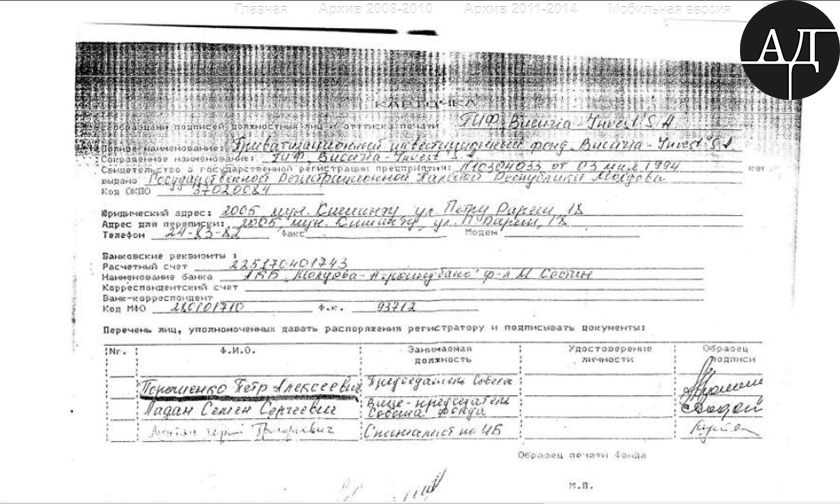 Главная Архив 2008-2010 Архив 2011-2014 Мобильная версия
АД
КАРТОЧКА
подписей должностных лиц и оттиска печати ПИФ "Bucuria-Invest" S.A.
Полное наименование: Приватизационный инвестиционный фонд "Bucuria-Invest" S.A.
Сокращенное наименование: ПИФ "Bucuria-Invest" S.A.
Свидетельство о государственной регистрации предприятия: N 10304033 от 03 мая 1994
выдано Государственной Регистрационной Палатой Республики Молдова
Код ОКПО 37020084
Юридический адрес: 2005 мун. Кишинэу ул. Петру Рареш, 18
Адрес для переписки: 2005, мун. Кишинэу, ул. П. Рареш, 18
Телефон 24-83-82 Факс Модем
Банковские реквизиты :
Расчетный счет 225170401743
Наименование банка АКБ "Молдова-Агроиндбанк" ф-л М.
Корреспондентский счет
Банк-корреспондент
Код МФО 280101710 Ф.к. 93712
Перечень лиц, уполномоченных давать распоряжения регистратору и подписывать документы:
Nr. Ф.И.О. Занимаемая должность Удостоверение личности Образец подписи
Порошенко Петр Алексеевич Председатель Совета
Ладан Семен Сергеевич Вице-председатель Совета Фонда
Григорьевич Специалист по ЦБ
Образец печати Фонда
М.П.